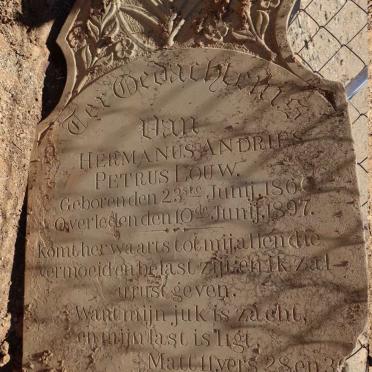 Ter Gedachtenis
Van
HERMANUS ANDRIES
PETRUS LOUW.
Geboren den 23ste Junij
Overleden den 10de Junij 1897.
Komt herwaarts tot mij allen die
vermoeid en belast zijt, en Ik zal
u rust geven.
Want mijn juk is zacht,
en mijn last is ligt.
Matt. 11 vers 28 en